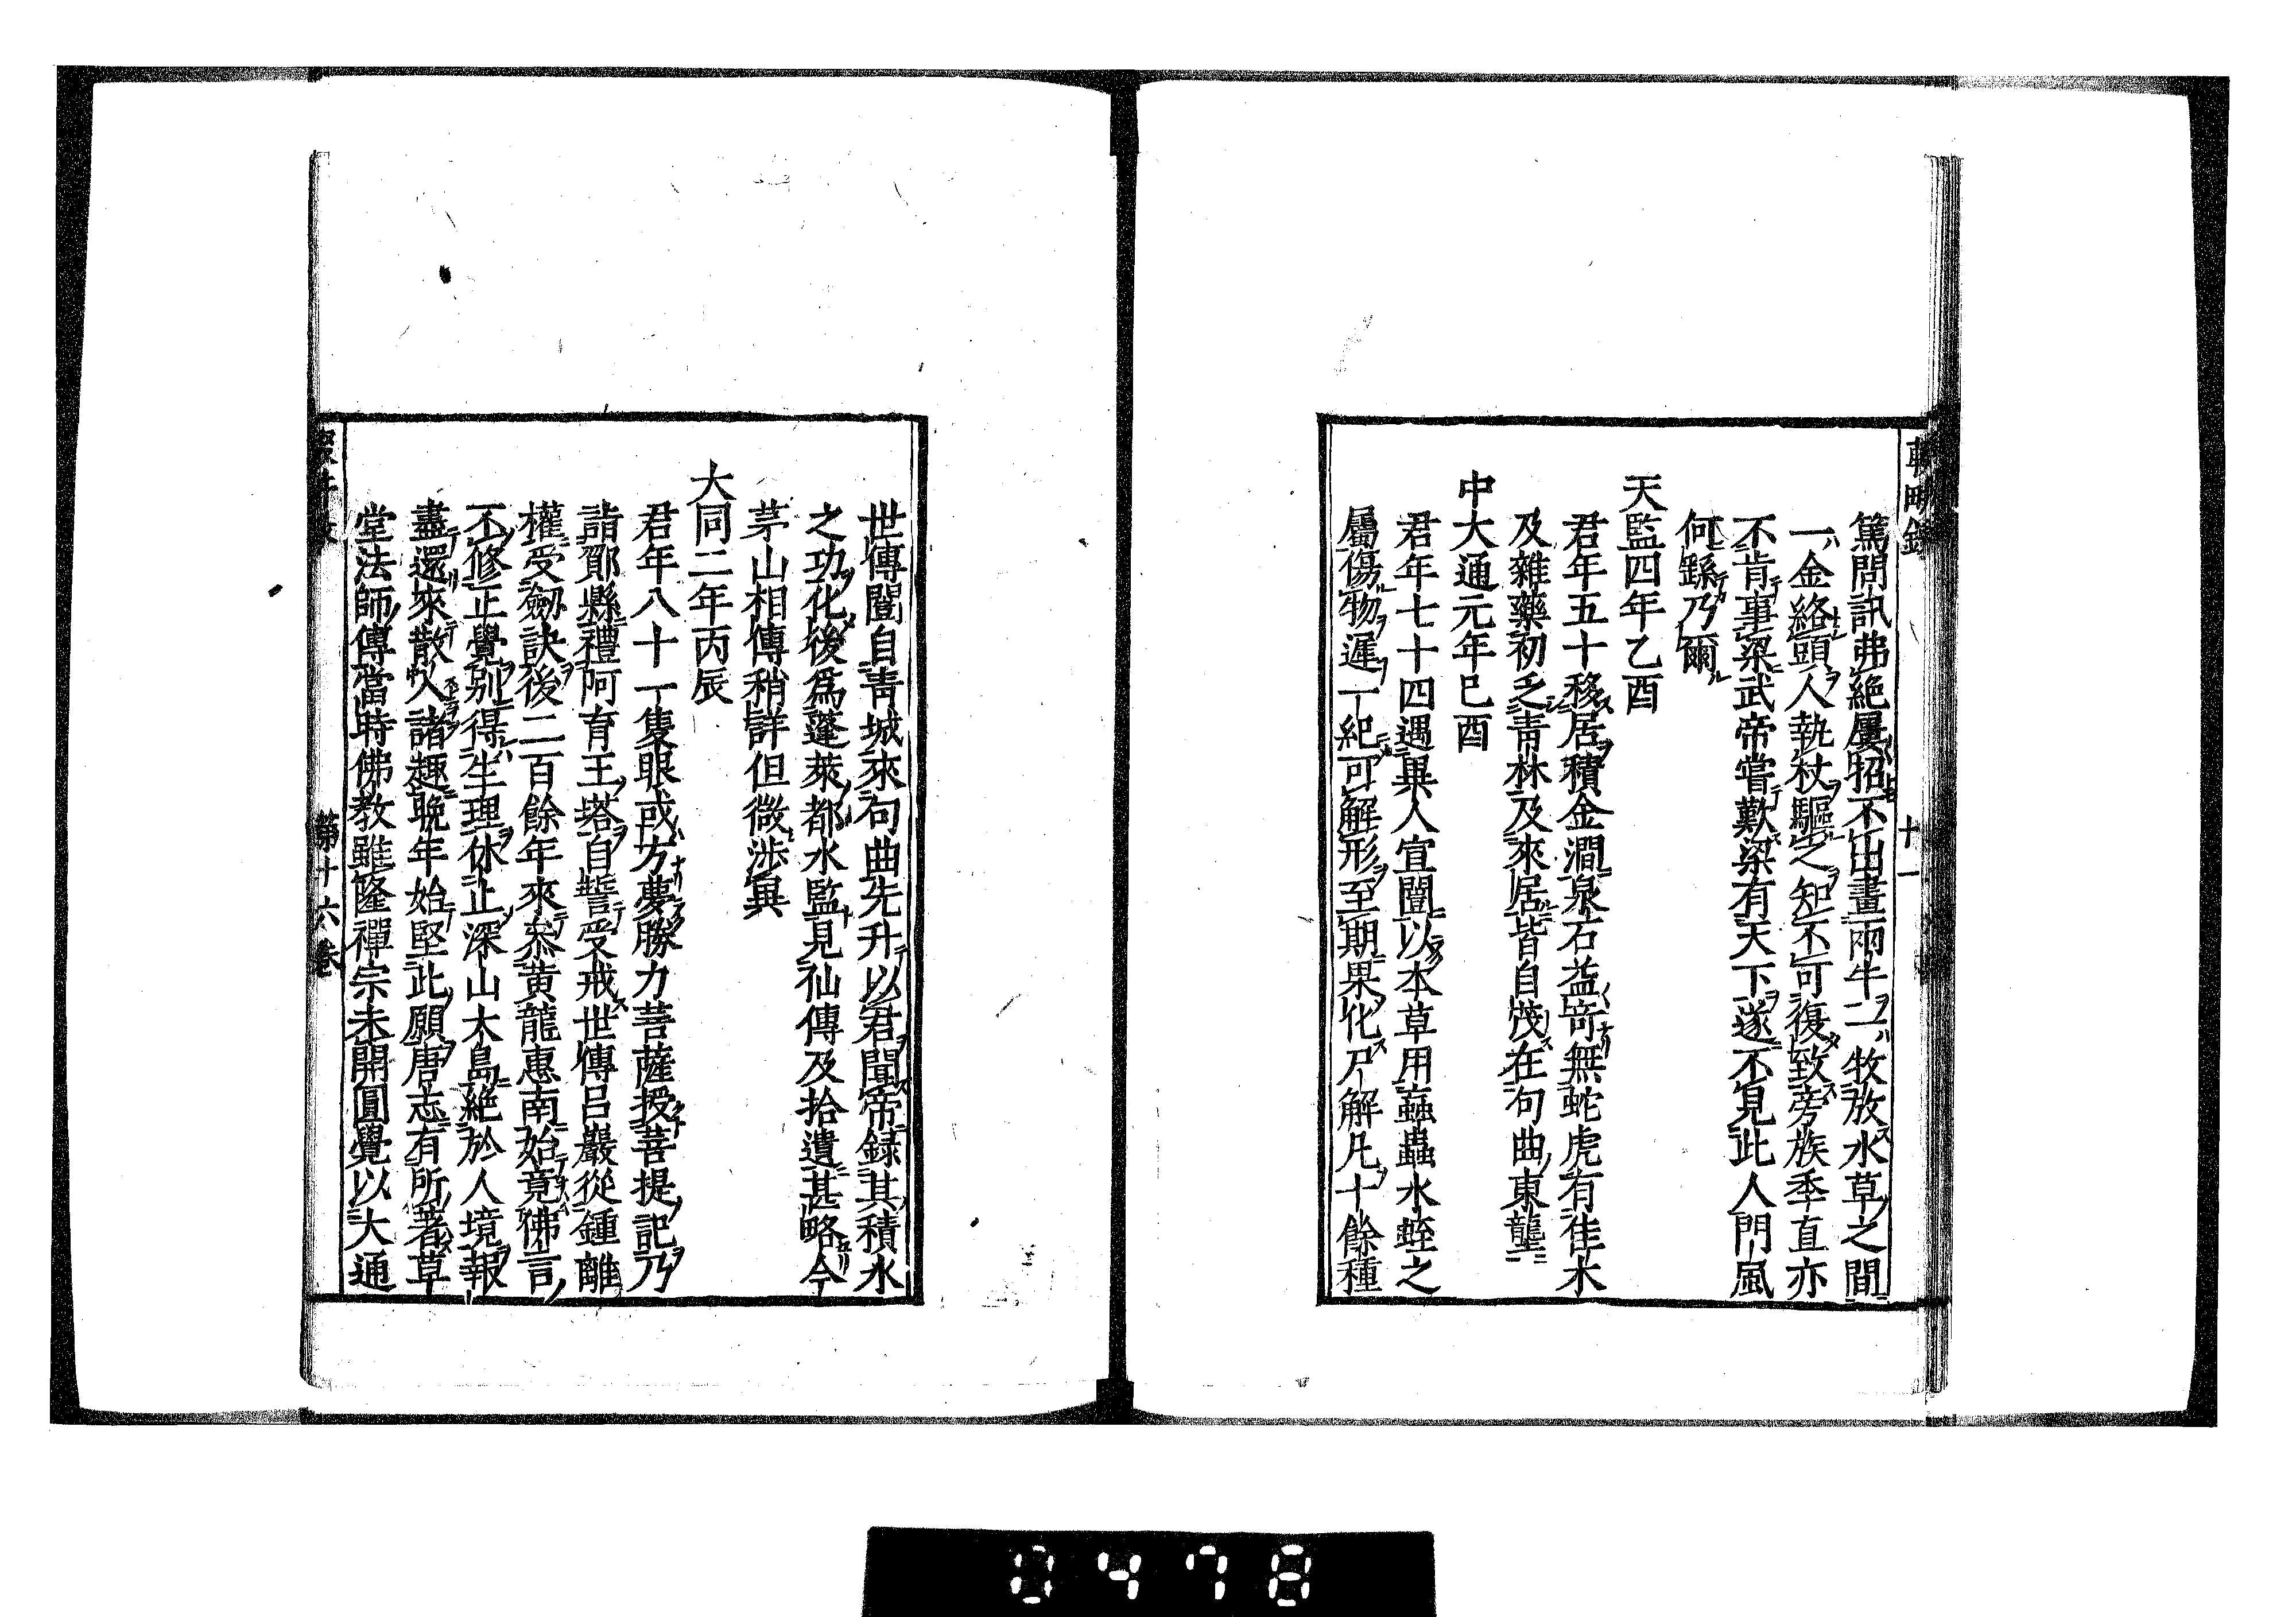 篤問訊弗絶屢招不出畫兩牛一牧放水草之間
一金絡頭人執杖驅之知不可復致旁族季直亦
不肯事梁武帝嘗歎梁有天下遂不見此人門風
何繇乃爾
天監四年乙酉
君年五十移居積金澗泉石益竒無蛇虎有佳木
及雜藥初乏青林及來居皆自茂在句曲東壟
中大通元年己酉
君年七十四遇異人宣闓以本草用蝱蟲水蛭之
屬傷物遲一紀可解形至期果化尸解凡十餘種
十一
世傳闓自青城來句曲先升以君聞帝録其積水
之功化後爲蓬萊都水監見仙傳及拾遺甚略今
茅山相傳稍詳但微渉異
大同二年丙辰
君年八十一隻眼或方夢勝力菩薩授菩提記乃
詣鄮縣禮阿育王塔自誓受戒世傳吕巖從鍾離
權受劒訣後二百餘年來叅黄龍惠南始竟佛言
不修正覺别得生理休止深山大島絶於人境報
盡還來散入諸趣晩年始堅此願唐志有所著草
堂法師傳當時佛教雖隆禪宗未開圓覺以大通
第十六巻
0478